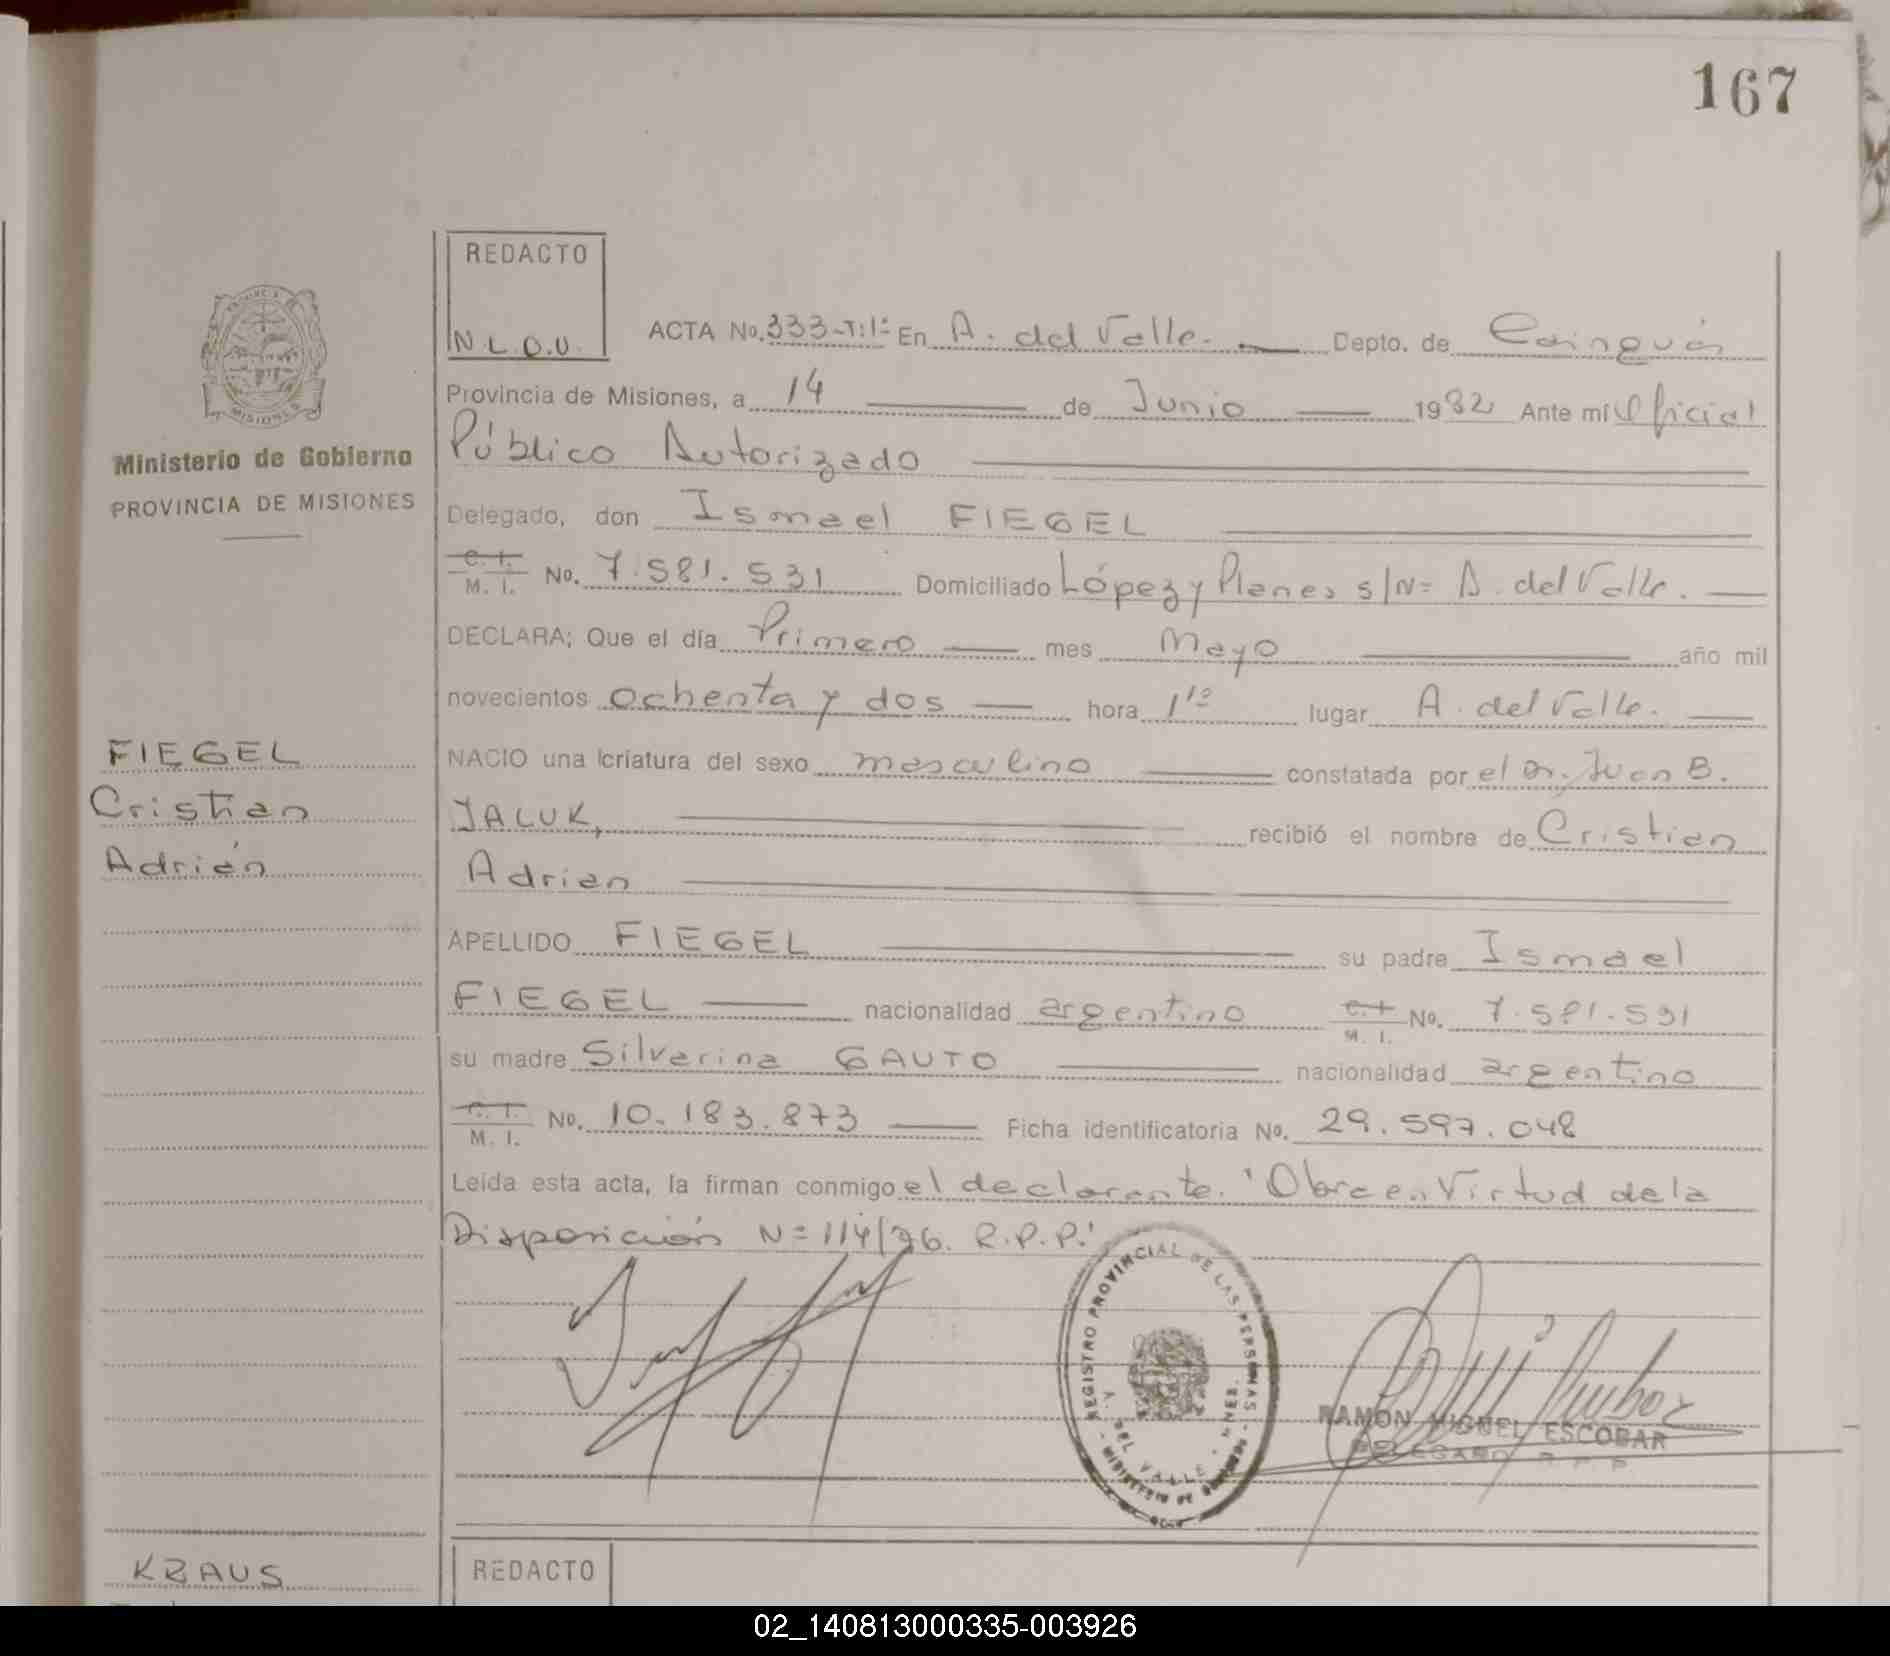 167
REDACTO
N.L.O.U.
PROVINCIA DE
MISIONES
Ministerio de Gobierno
PROVINCIA DE MISIONES
ACTA No. 333-T:1º En A. del Valle. Depto. de Cainguás
Provincia de Misiones, a 14 de Junio 1982 Ante mi Oficial
Público Autorizado
Delegado, don Ismael FIEGEL
C. I. M. I. No. 7.581.531 Domiciliado López y Planes s/Nº A. del Valle.
DECLARA; Que el día Primero mes Mayo año mil
novecientos ochenta y dos hora 1 lugar A. del Valle.
NACIO una criatura del sexo masculino constatada por el Dr. Juan B.
JALUK, recibió el nombre de Cristian
Adrian
FIEGEL
Cristian
Adrián
APELLIDO FIEGEL su padre Ismael
FIEGEL nacionalidad argentino C. I. M. I. No. 7.581.531
su madre Silverina GAUTO nacionalidad argentino
C. I. M. I. No. 10.183.873 Ficha identificatoria No. 29.597.048
Leída esta acta, la firman conmigo el declarante. "Obra en Virtud de la
Disposición Nº 114/76. R.P.P."
REGISTRO PROVINCIAL DE LAS PERSONAS
A. DEL VALLE - MNES.
MINISTERIO DE GOBIERNO
RAMON MIGUEL ESCOBAR
DELEGADO R.P.P.
KRAUS
REDACTO
02_140813000335-003926